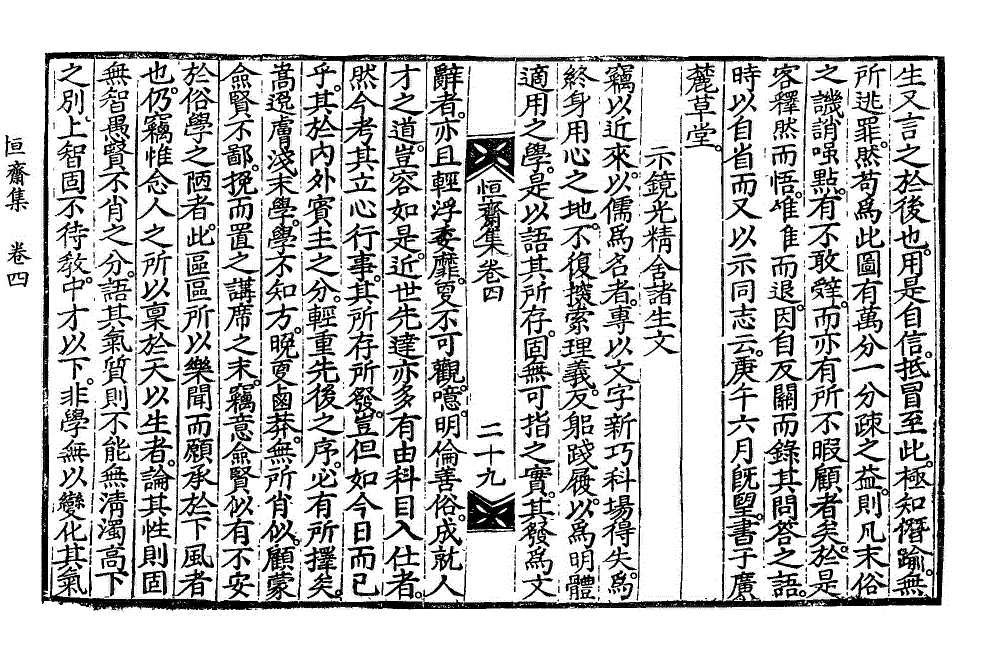 生又言之於後也。用是自信。抵冒至此。極知僭踰。無
所逃罪。然苟爲此圖有萬分一分疎之益。則凡末俗
之譏誚嗤點。有不敢辭。而亦有所不暇顧者矣。於是
客釋然而悟。唯唯而退。因自反關而錄其問答之語。
時以自省而又以示同志云。庚午六月旣望。書于廣
麓草堂。
示鏡光精舍諸生文
竊以近來。以儒爲名者。專以文字新巧科場得失。爲
終身用心之地。不復摸索理義。反躬踐履。以爲明體
適用之學。是以語其所存。固無可指之實。其發爲文
恒齋集卷四
二十九
辭者。亦且輕浮委靡。更不可觀。噫。明倫善俗。成就人
才之道。豈容如是。近世先達亦多有由科目入仕者。
然今考其立心行事。其所存所發。豈但如今日而已
乎。其於內外賓主之分。輕重先後之序。必有所擇矣。
嵩逸膚淺末學。學不知方。晩更鹵莽。無所肖似。顧蒙
僉賢不鄙。挽而置之講席之末。竊意僉賢似有不安
於俗學之陋者。此區區所以樂聞而願承於下風者
也。仍竊惟念人之所以稟於天以生者。論其性則固
無智愚賢不肖之分。語其氣質則不能無淸濁高下
之別。上智固不待敎。中才以下。非學無以變化其氣
恒齋集 卷四